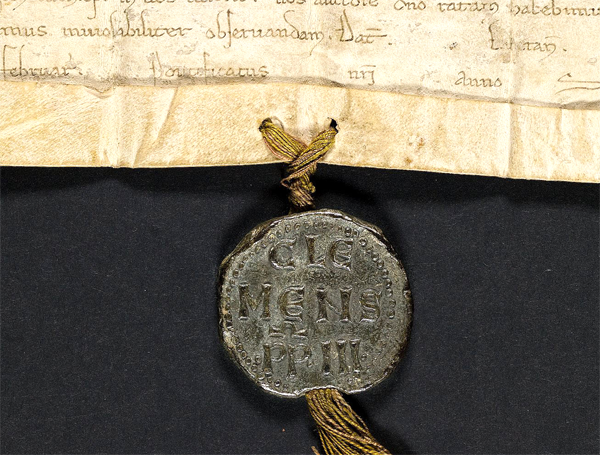 auctore dno ratam habebimus
mus inuiolabiliter obseruandam. Dat. Lateran.
februar. Pontificatus nri Anno
CLE
MENS
PP III